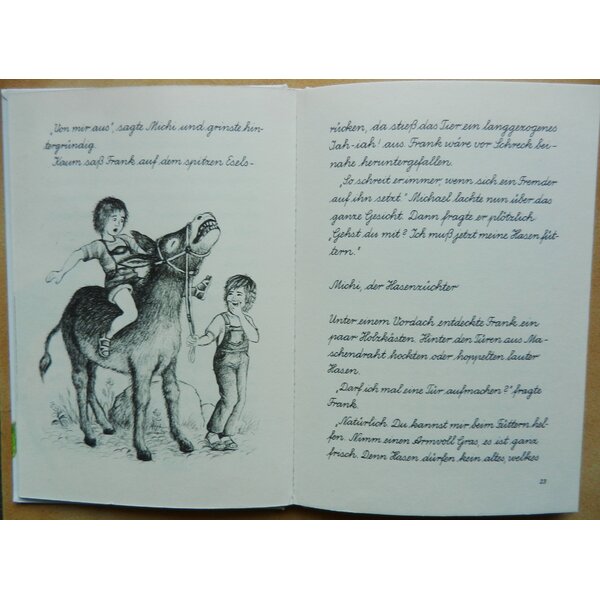 „Von mir aus", sagte Michi und grinste hin-
tergründig.
Kaum saß Frank auf dem spitzen Esels-
rücken, da stieß das Tier ein langgezogenes
Iah-iah! aus. Frank wäre vor Schreck bei-
nahe heruntergefallen.
„So schreit er immer, wenn sich ein Fremder
auf ihn setzt." Michael lachte nun über das
ganze Gesicht. Dann fragte er plötzlich
„Gehst du mit? Ich muß jetzt meine Hasen füt-
tern."
Michi, der Hasenzüchter
Unter einem Vordach entdeckte Frank ein
paar Holzkästen. Hinter den Türen aus Ma-
schendraht hockten oder hoppelten lauter
Hasen.
„Darf ich mal eine Tür aufmachen?" fragte
Frank.
„Natürlich. Du kannst mir beim Füttern hel-
fen. Nimm einen Armvoll Gras, es ist ganz
frisch. Denn Hasen dürfen kein altes, welkes
23